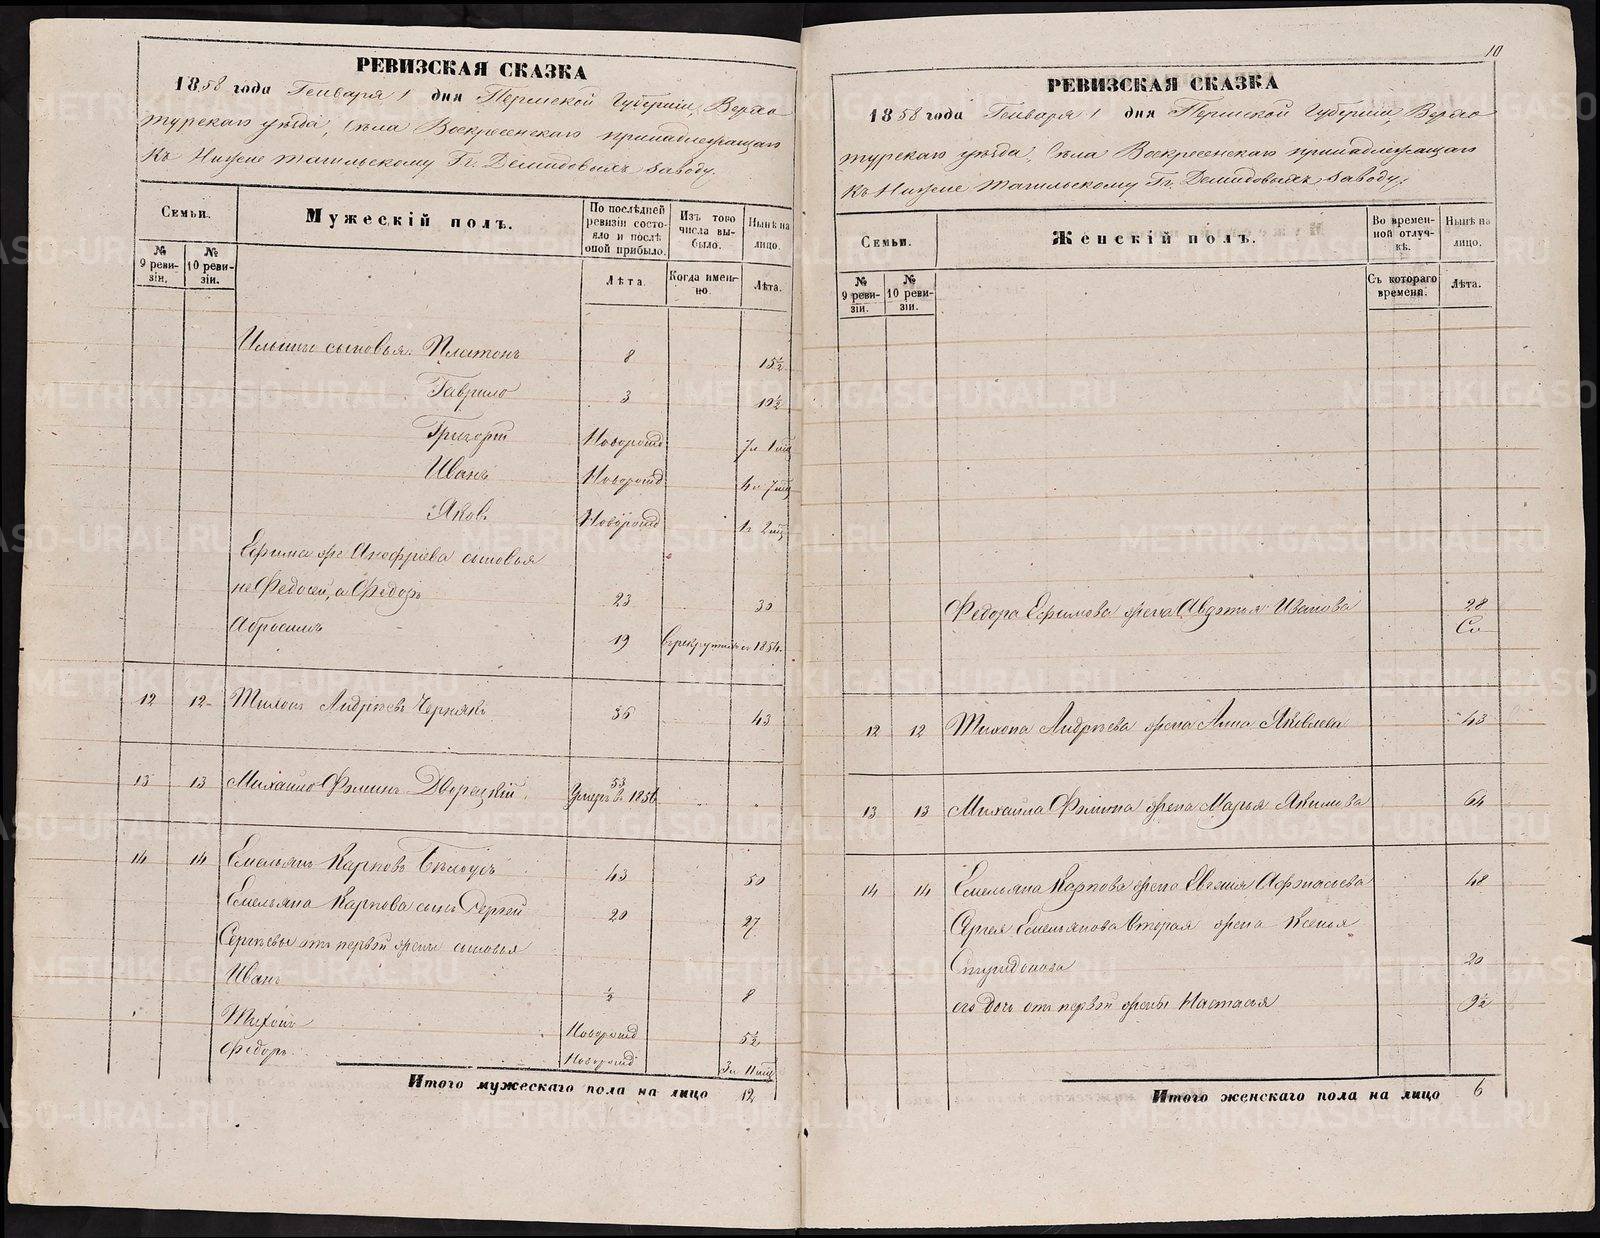 РЕВИЗСКАЯ СКАЗКА
1858 года Генваря 1 дня Пермской Губернии, Верхо
турскаго уѣзда, Села Воскресенскаго принадлежащаго
Къ Нижне Тагильскому Гг. Демидовыхъ заводу.
Семьи.
Мужескій полъ.
По послѣдней ревизіи состояло и послѣ оной прибыло.
Изъ того числа выбыло.
Нынѣ на лицо.
№ 9 ревизіи.
№ 10 ревизіи.
Лѣта.
Когда именно.
Лѣта.
сыновья. Платонъ 8 15½
Гаврило 3 10½
Григорій Новорожд 7л 1 мѣс
Иванъ Новорожд 4л 7 мѣс
Яковъ Новорожд 1г 2 мѣс
Ефима Анофріева сыновья
не Федосей, а Федоръ 23 30
Абросимъ 19 въ рекрутахъ съ 1854.
12 12 Тихонъ Андреевъ Чернякъ 36 43
13 13 Михайло Фоминъ Дворецкій. 53 Умеръ въ 1856
14 14 Емельянъ Карповъ Бѣлоусъ 43 50
Емельяна Карпова сынъ Сергей 20 27
Сергѣевы отъ первой жены сыновья
Иванъ ½ 8
Тихонъ Новорожд 5½
Федоръ. Новорожд 3л 11 мѣс
Итого мужескаго пола на лицо 12
10
РЕВИЗСКАЯ СКАЗКА
1858 года Генваря 1 дня Пермской Губерніи, Верхо
турскаго уѣзда, Села Воскресенскаго принадлежащаго
Къ Нижне Тагильскому Гг. Демидовыхъ заводу.
Семьи.
Женскій полъ.
Во временной отлучкѣ.
Нынѣ на лицо.
№ 9 ревизіи.
№ 10 ревизіи.
Съ котораго времени.
Лѣта.
Федора Ефимова жена Авдотья Иванова 28
12 12 Тихона Андреева жена Анна Яковлева 43
13 13 Михайла Фомина жена Марья Якимова 64
14 14 Емельяна Карпова жена Евгенія Афонасьева 48
Сергея Емельянова вторая жена Ксенья
Спиридонова 20
его дочь отъ первой жены Настасья 9½
Итого женскаго пола на лицо 6
METRIKI.GASO-URAL.RU